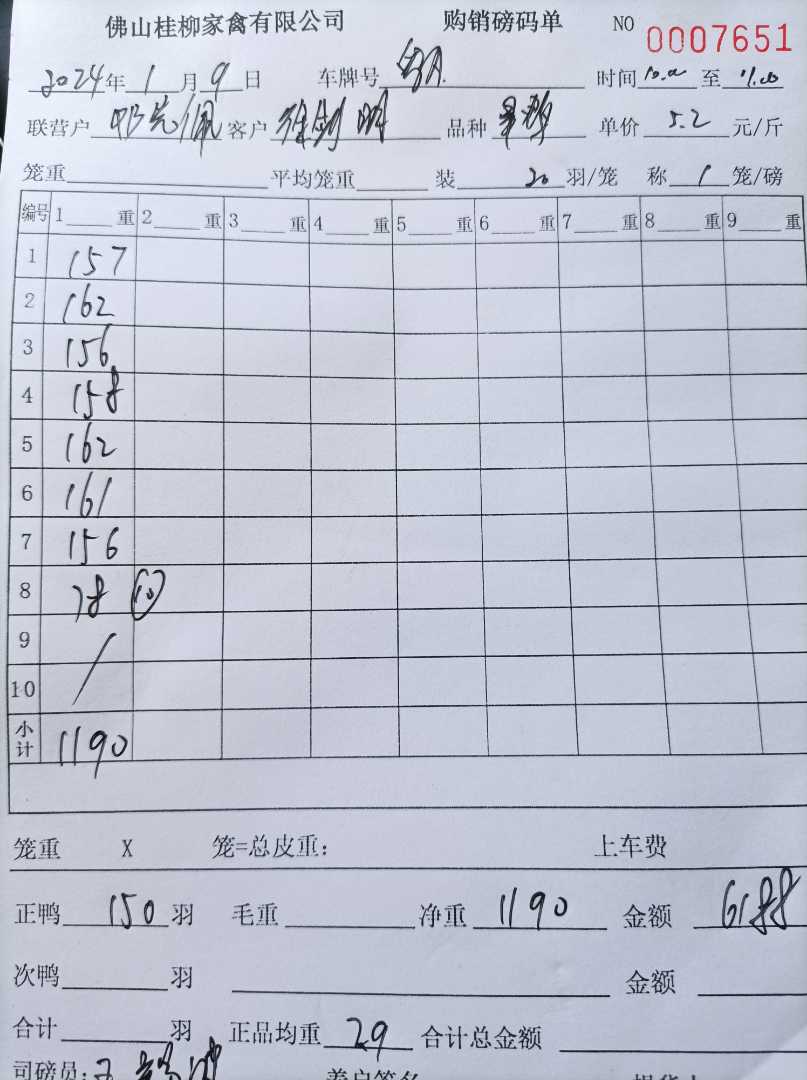 佛山桂柳家禽有限公司 购销磅码单 NO 0007651
2024年1月9日 车牌号 时间10.00至11.00
联营户 客户 品种 单价5.2元/斤
笼重 平均笼重 装20羽/笼 称1笼/磅
编号 1 重 2 重 3 重 4 重 5 重 6 重 7 重 8 重 9 重
1 157
2 162
3 156
4 158
5 162
6 161
7 156
8 78 (10)
9
10
小计 1190
笼重 X 笼=总皮重: 上车费
正鸭150羽 毛重 净重1190 金额6188
次鸭 羽 金额
合计 羽 正品均重 7.9 合计总金额
司磅员: